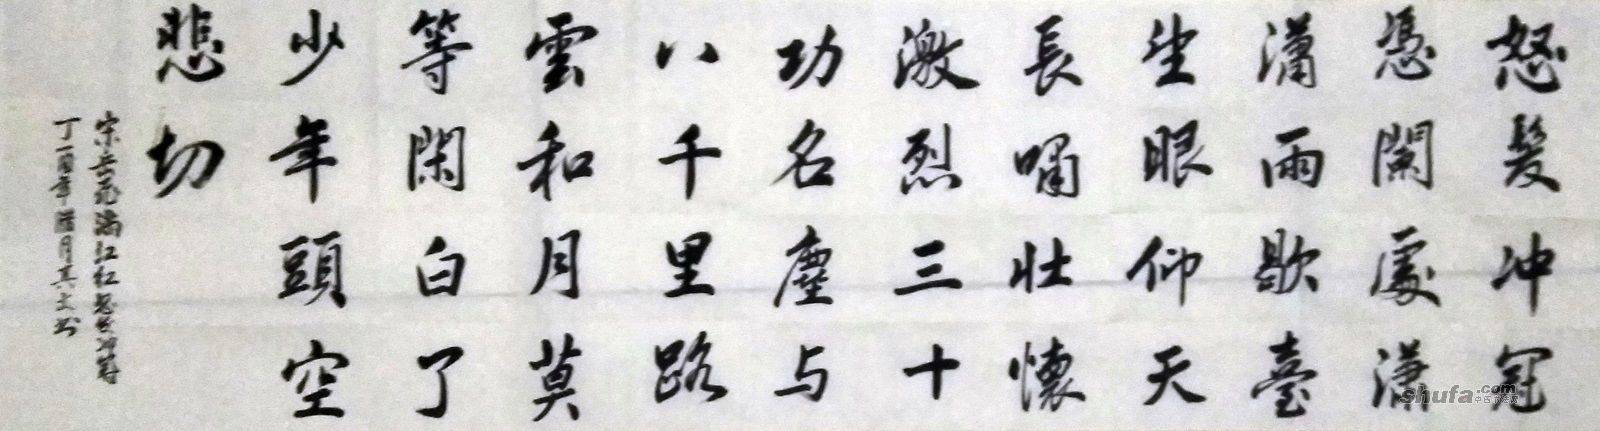 怒髮冲冠
憑闌處潇
潇雨歇臺
坐眼仰天
長嘯壯懷
激烈三十
功名塵与
八千里路
雲和月莫
等閑白了
少年頭空
悲切
宋岳飛滿江紅怒髮冲冠
丁酉年腊月其文书
shufa.com